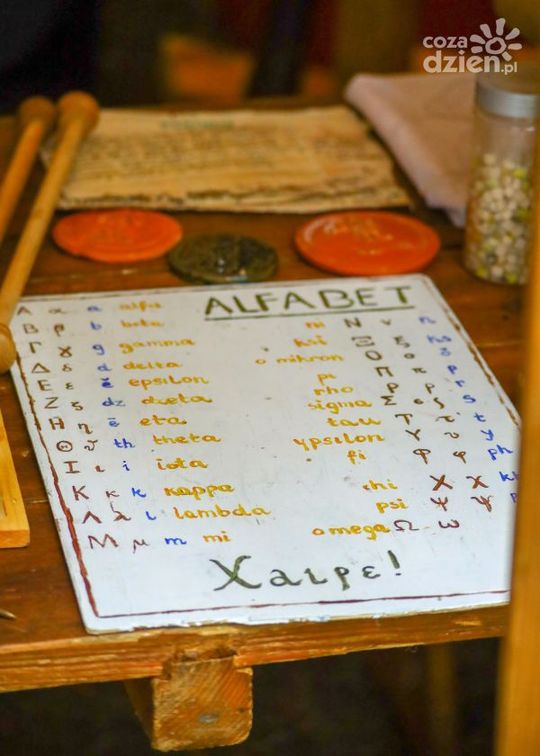 coza
dzien.pl
ALFABET
Α α a alfa
Β β b beta
Γ γ g gamma
Δ δ d delta
Ε ε ĕ epsilon
Ζ ζ dz dzeta
Η η ē eta
Θ ϑ th theta
Ι ι i iota
Κ κ k kappa
Λ λ l lambda
Μ μ m mi
ni Ν ν n
ksi Ξ ξ ks
o mikron Ο ο
pi Π π p
rho Ρ ρ r
sigma Σ ς s
tau Τ τ t
ypsilon Υ υ y
fi Φ φ ph
chi Χ χ
psi Ψ ψ
omega Ω ω
Χαιρε!